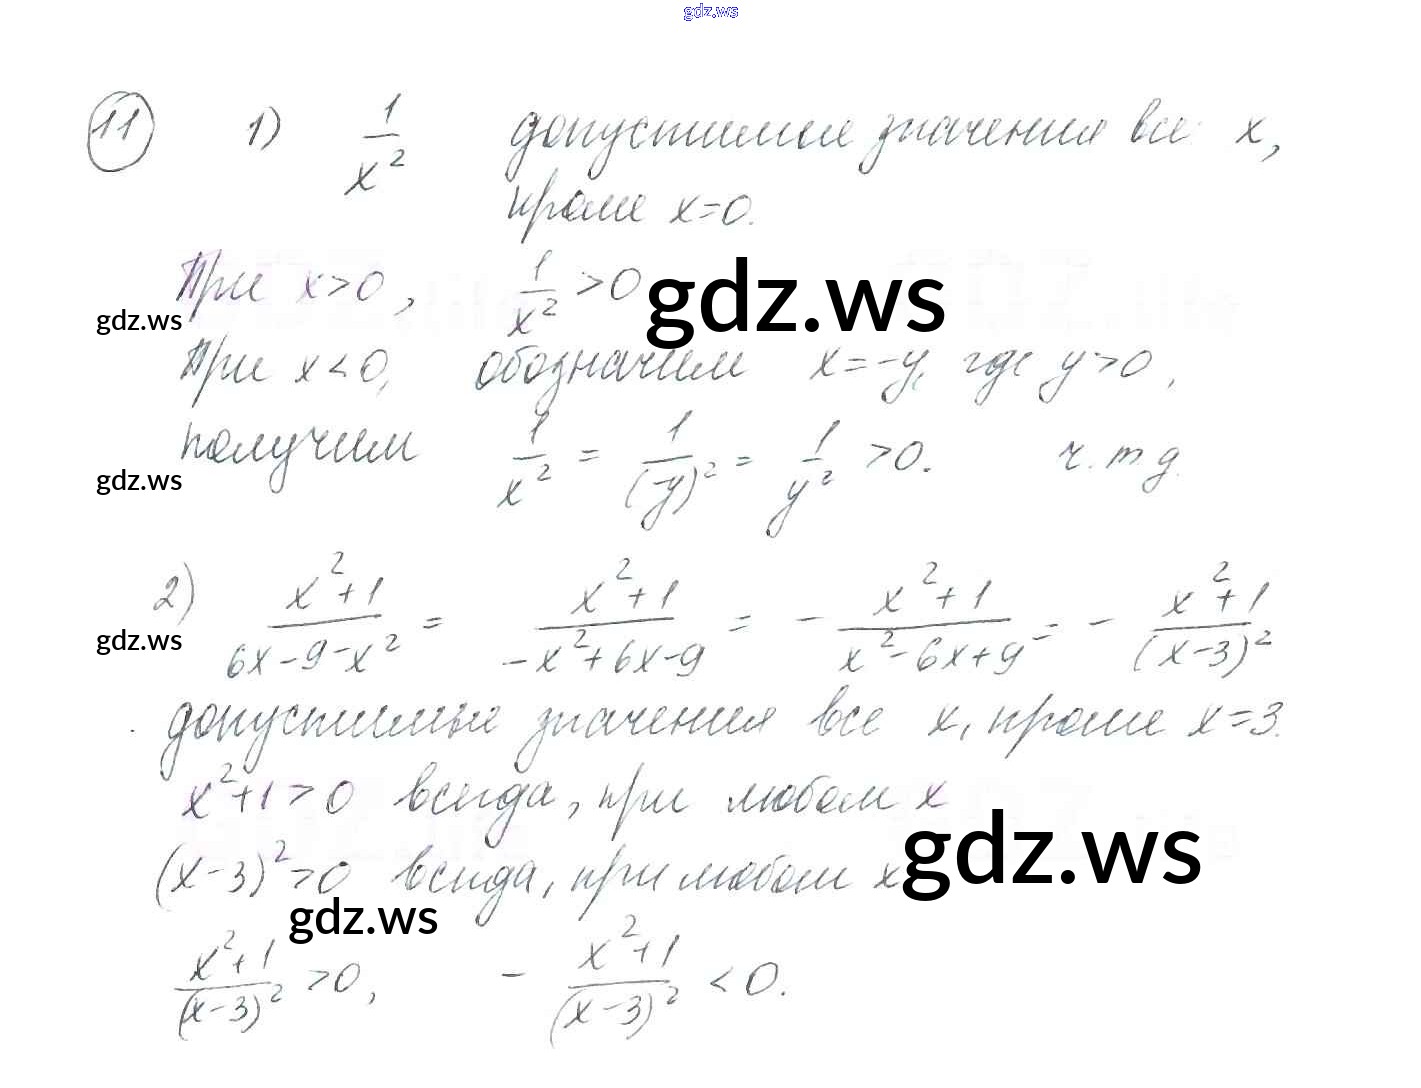 gdz.ws
11 1) 1/x² допустимые значения все x,
кроме x=0.
При x>0, 1/x² >0
gdz.ws
gdz.ws
При x<0, обозначим x=-y, где y>0,
получим 1/x² = 1/(-y)² = 1/y² >0. ч.т.д.
gdz.ws
2) (x²+1)/(6x-9-x²) = (x²+1)/(-x²+6x-9) = -(x²+1)/(x²-6x+9) = -(x²+1)/(x-3)²
gdz.ws
допустимые значения все x, кроме x=3.
x²+1>0 всегда, при любом x
gdz.ws
(x-3)²>0 всегда, при любом x
gdz.ws
(x²+1)/(x-3)² >0, -(x²+1)/(x-3)² <0.